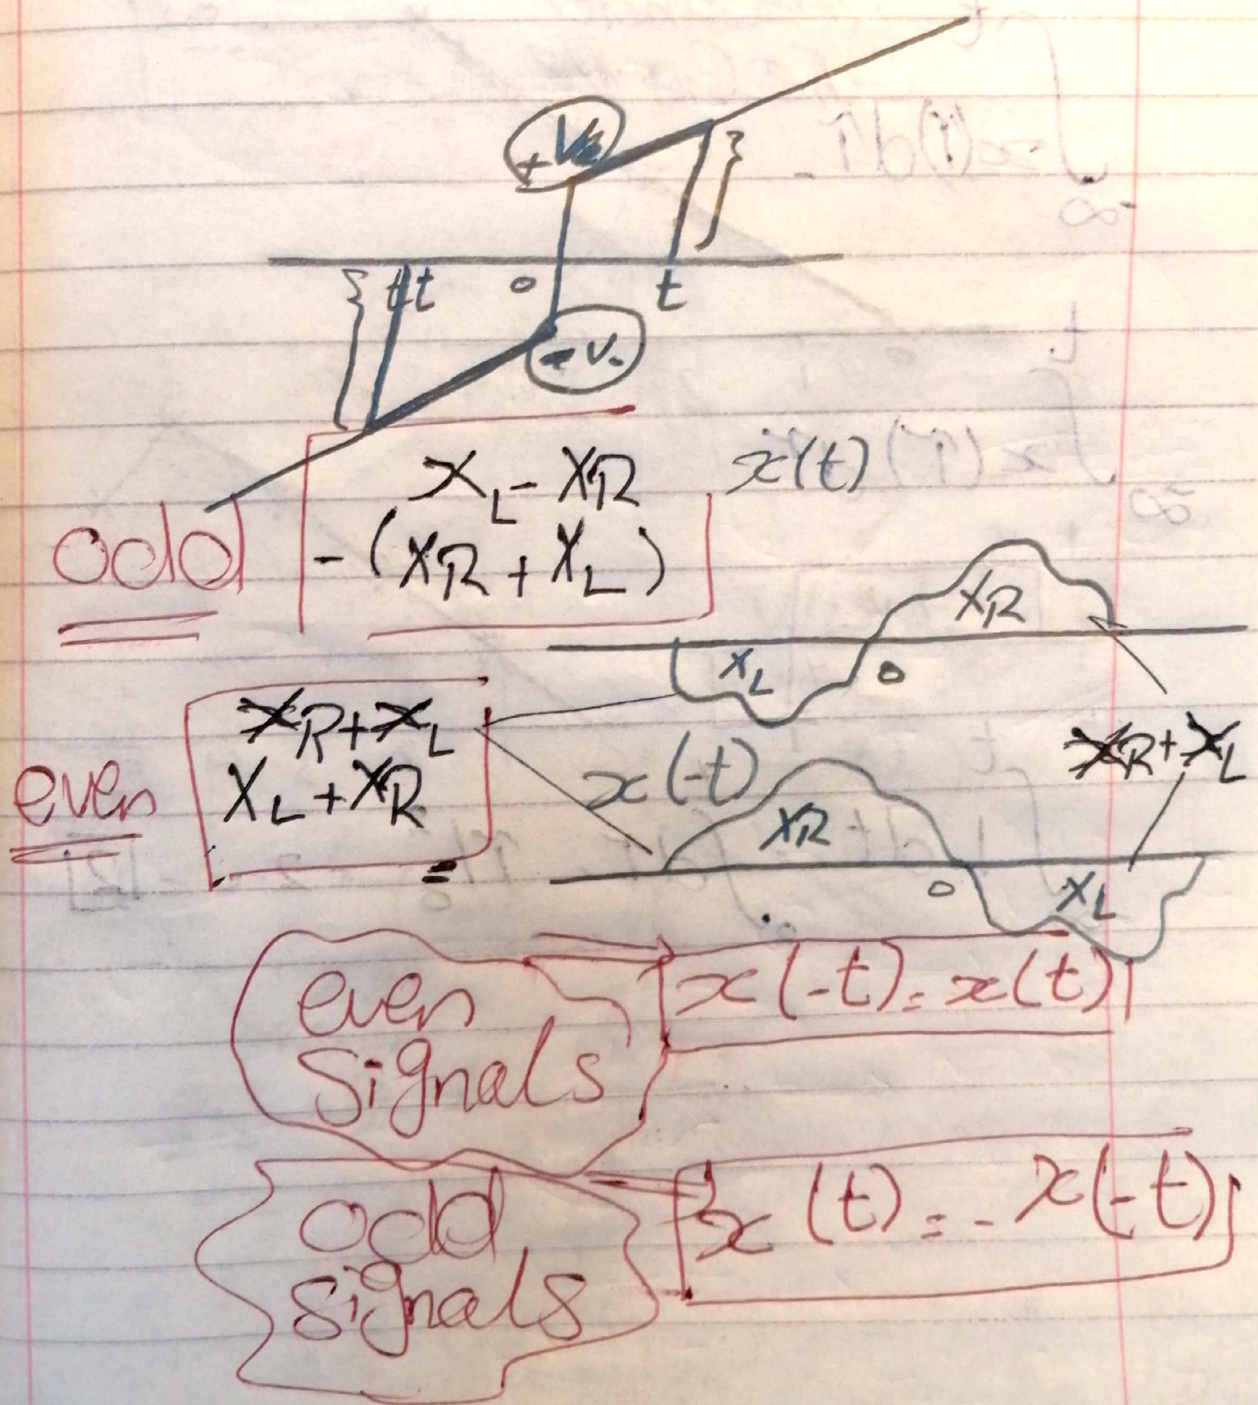 +Ve
t
t
0
t
-V-
odd
x_L - X_R
-(X_R + X_L)
x(t)
X_R
X_L
0
even
X_R + X_L
X_L + X_R
x(-t)
X_R
X_R + X_L
0
X_L
even
signals
x(-t) = x(t)
odd
signals
x(t) = -x(-t)